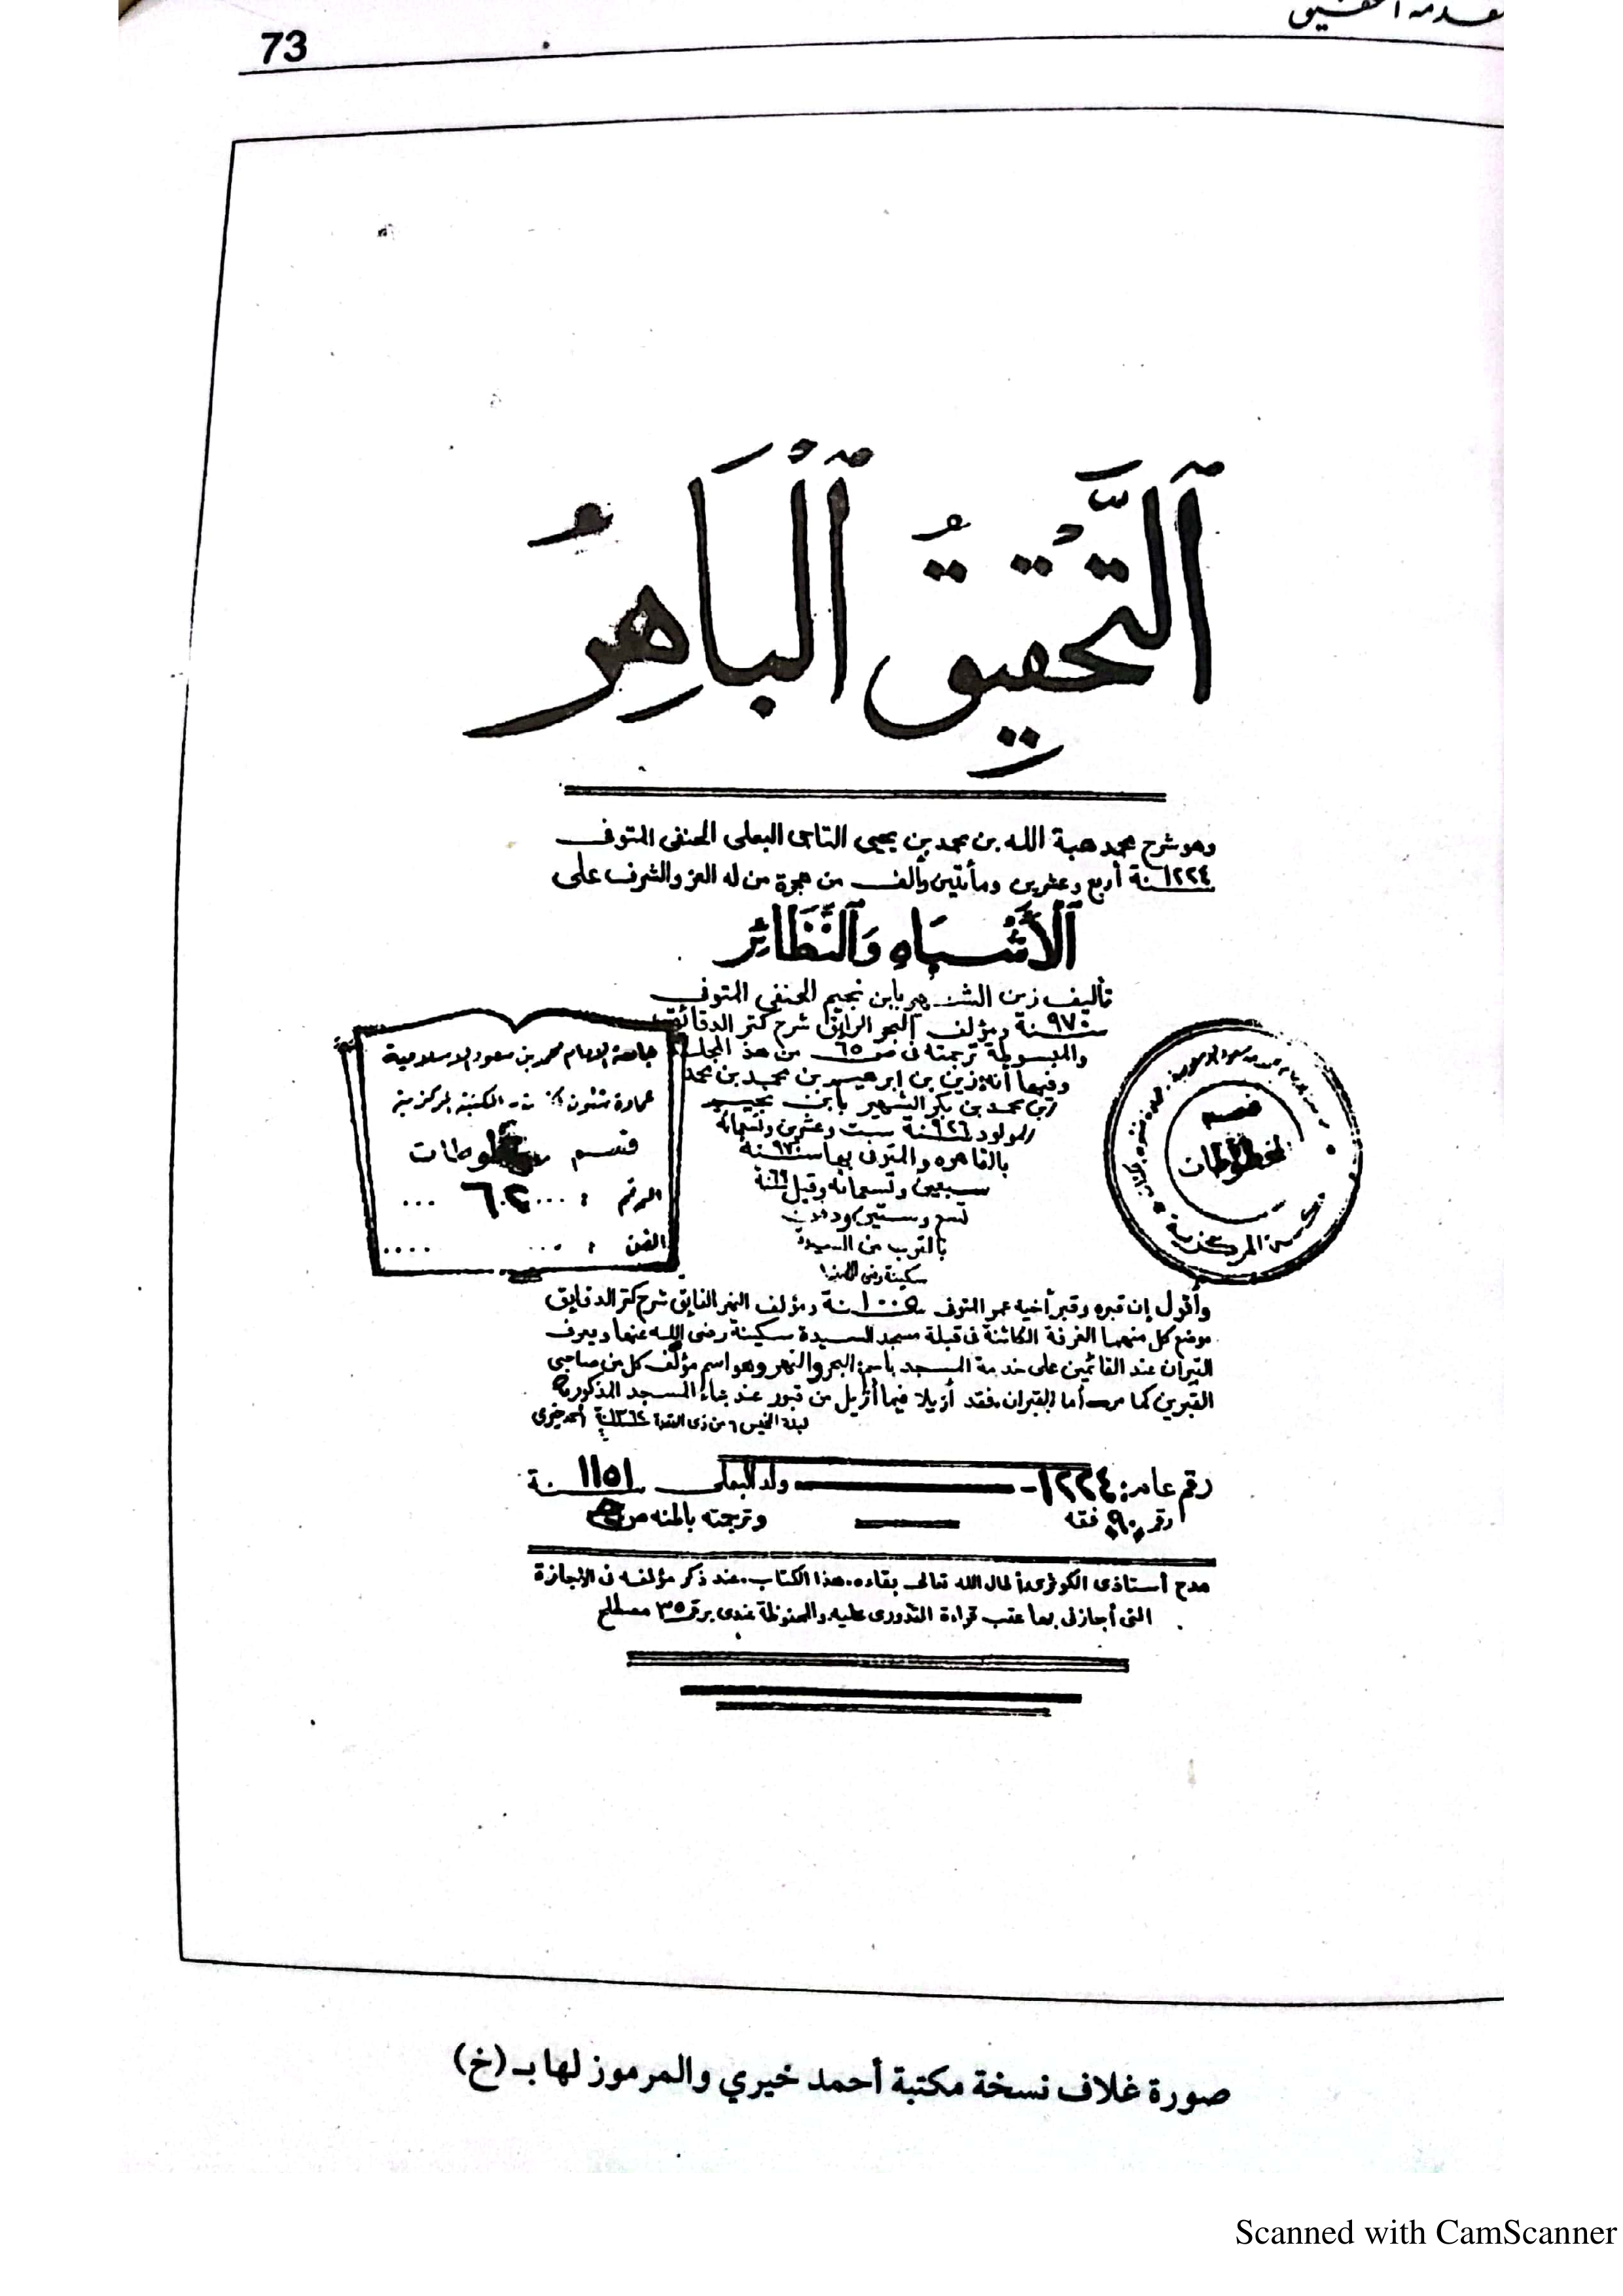 73
مقدمة التحقيق
ٱلتَّحْقِيقُ ٱلْبَاهِرُ
وهو شرح محمد هبة الله بن محمد بن يحيى التاجى البعلى الحنفى المتوفى
١٢٢٤سنة أربع وعشرين ومأتين وألف من هجرة من له العز والشرف على
ٱلْأَشْبَاهِ وَٱلنَّظَائِرِ
تأليف زين الشهير بابن نجيم الحنفى المتوفى
٩٧٠سنة ومؤلف البحر الرايق شرح كنز الدقائق
والمبسوطة ترجمته فى ص ٦٥ من هذ المجلد
وفيها أنه: زين بن ابرهيم بن محمد بن محمد
ابن محمد بن بكر الشهير بابن نجيم
المولود ٩٢٦سنة ست وعشرين وتسمائه
بالقاهره والمتوفى بها سنة٩٧٠
سبعين وتسمائه وقيل ٦٩سنة
تسع وستين ودفن
بالقرب من السيدة
سكينة رضى الله عنها
جامعة الإمام محمد بن سعود الإسلامية
عمادة شئون المكتبة المركزية
قسم المخطوطات
الرقم : ٦٠٢
الفن :
قسم
المخطوطات
المركزية
وأقول إن قبره وقبر أخيه عمر المتوفى ١٠٠٥سنة ومؤلف النهر الفايق شرح كنز الدقايق
موضع كل منهما الغرفة الكائنة فى قبلة مسجد السيدة سكينة رضى الله عنها ويعرف
القبران عند القائمين على خدمة المسجد باسم البحر والنهر وهو اسم مؤلف كل من صاحبى
القبرين كما مر أما القبران فقد أزيلا فيما أزيل من قبور عند بناء المسجد المذكور
ليلة الخميس ٦ من ذى القعدة ١٣٦٢سنة أحمد خيرى
رقم عام: ١٢٢٤- ولد البعلى ١١٥١سنة
رقم ٩٠ فقه وترجمته بالمنه ص
مدح أستاذى الكوثرى أطال الله تعالى بقاءه. هذا الكتاب. عند ذكر مؤلفه فى الإجازة
التى أجازنى بها عقب قراءة القدورى عليه والمحفوظة عندى برقم ٣٥ مصطلح
صورة غلاف نسخة مكتبة أحمد خيري والمرموز لها بـ (خ)
Scanned with CamScanner